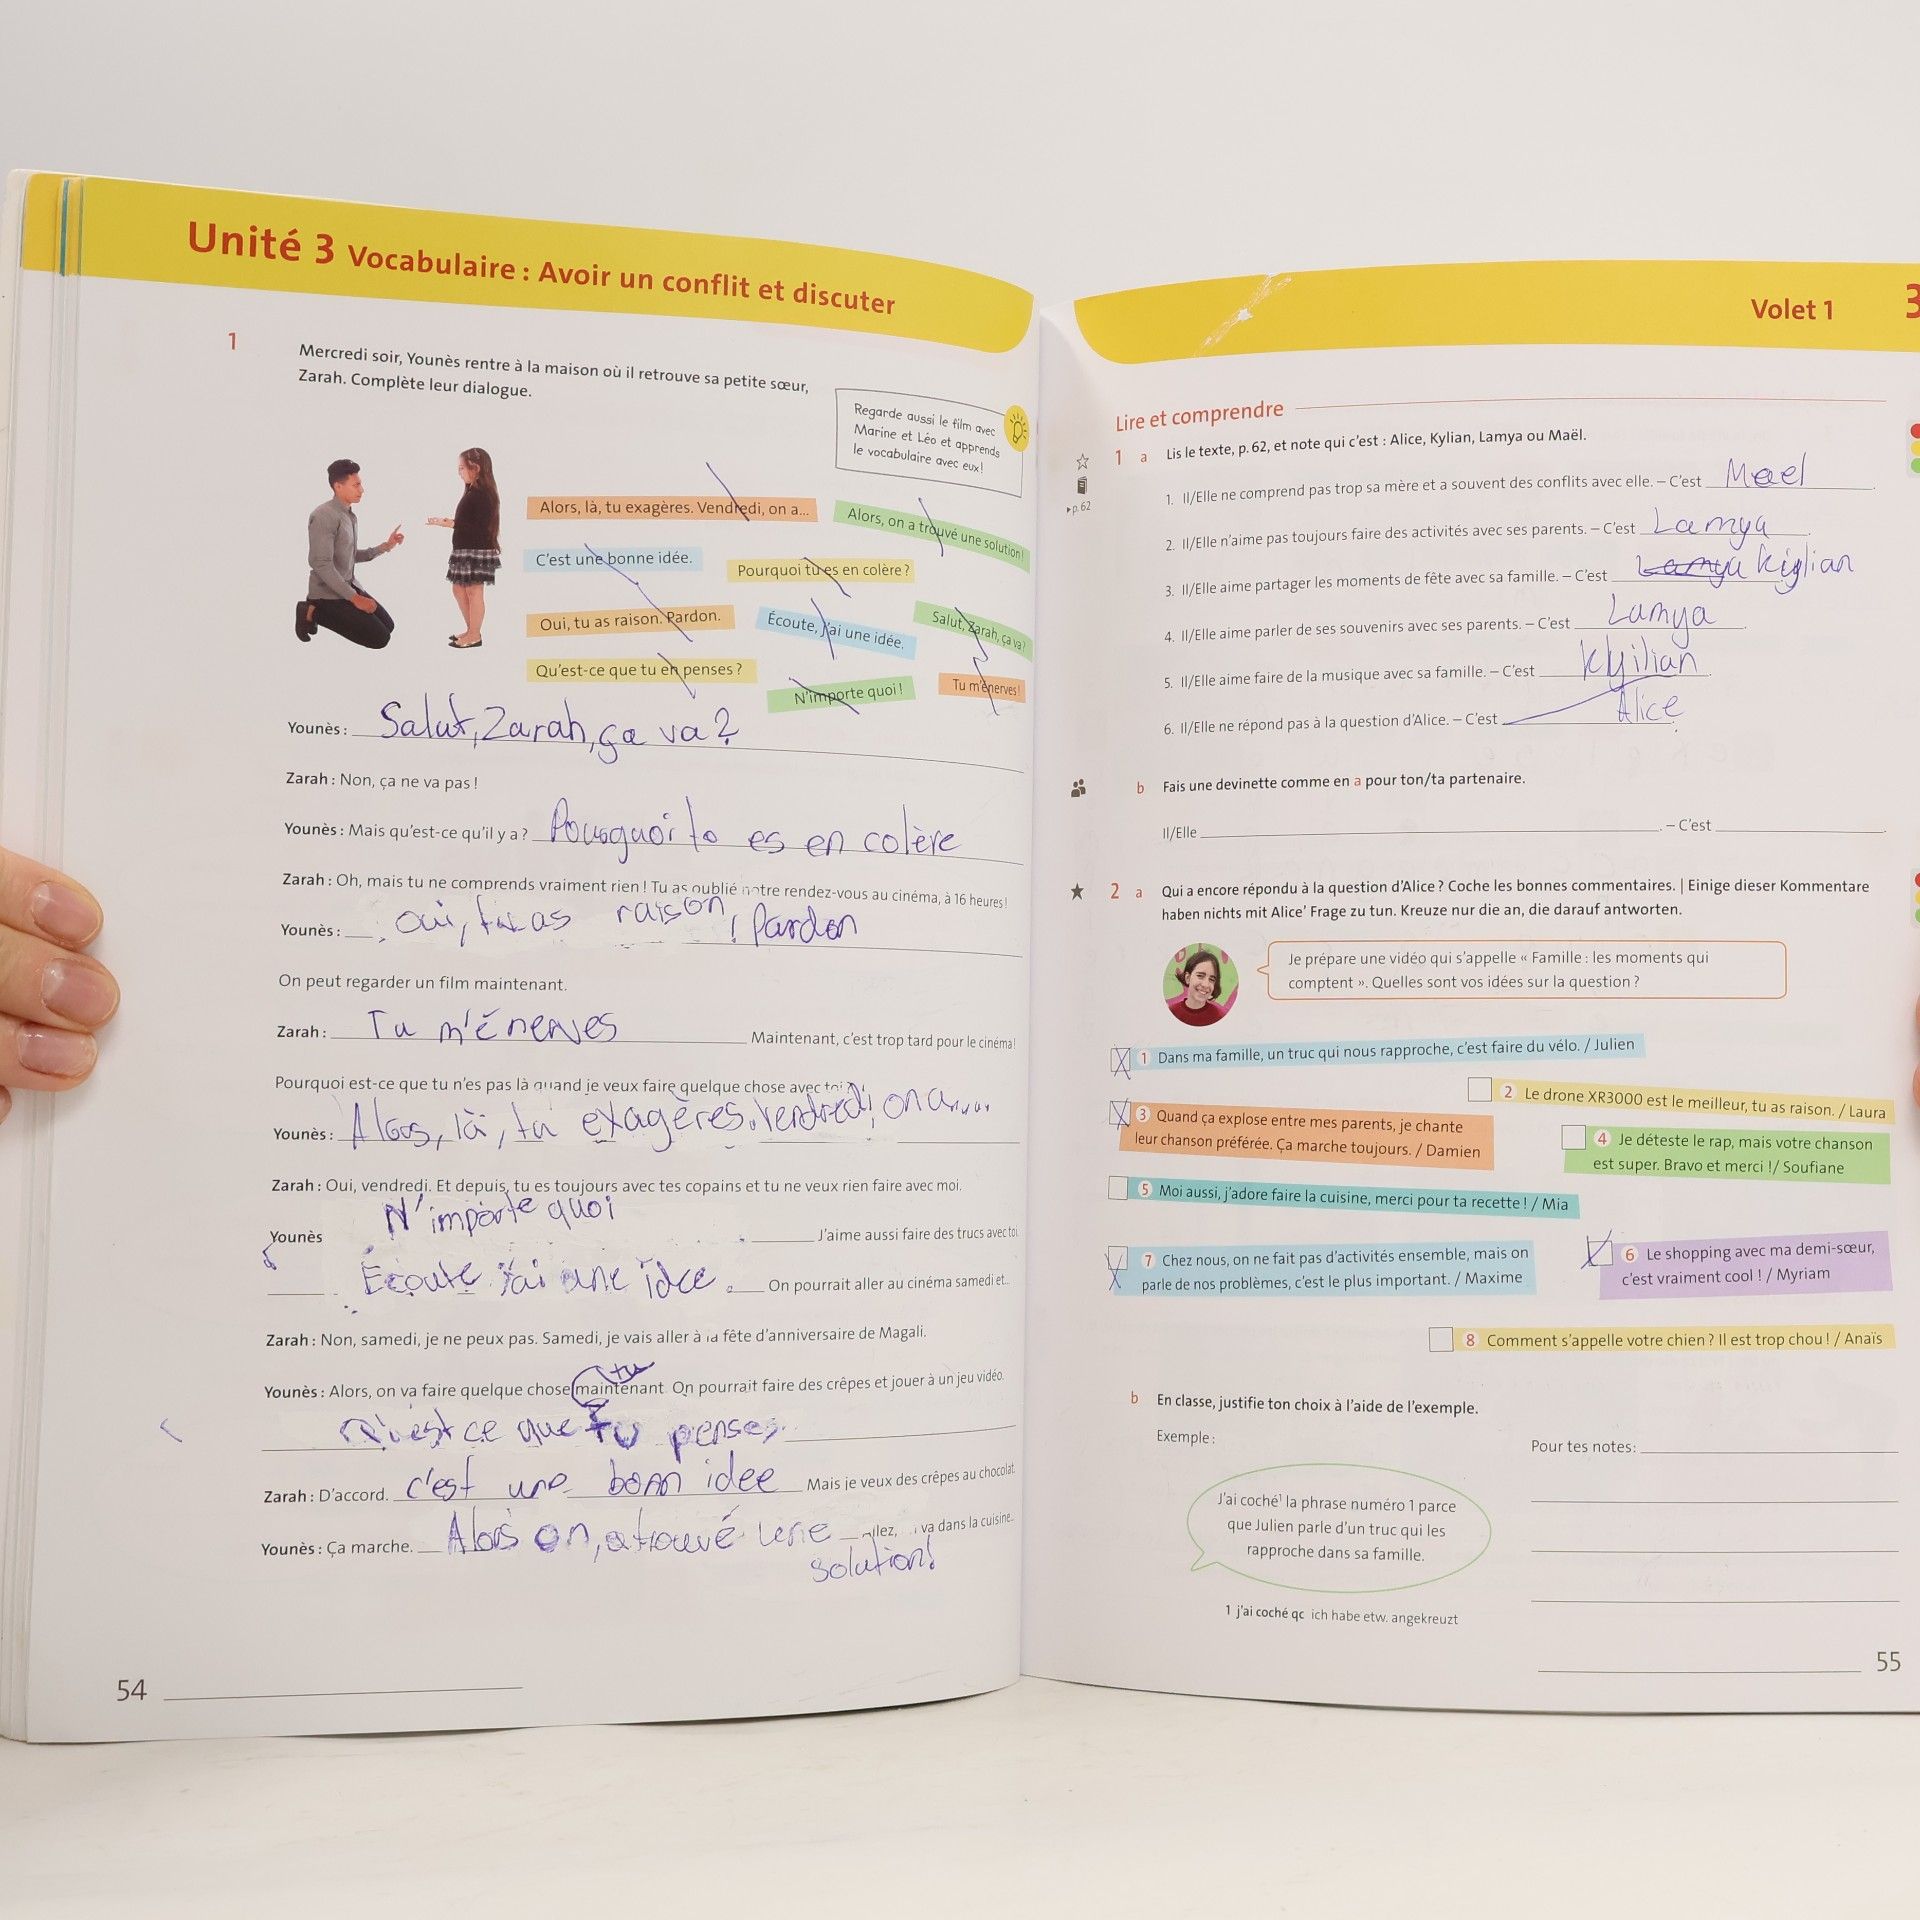 Unité 3 Vocabulaire : Avoir un conflit et discuter
1 Mercredi soir, Younès rentre à la maison où il retrouve sa petite sœur,
Zarah. Complète leur dialogue.
Regarde aussi le film avec
Marine et Léo et apprends
le vocabulaire avec eux!
Alors, là, tu exagères. Vendredi, on a...
Alors, on a trouvé une solution!
C'est une bonne idée.
Pourquoi tu es en colère ?
Oui, tu as raison. Pardon.
Écoute, j'ai une idée.
Salut, Zarah, ça va ?
Qu'est-ce que tu en penses ?
N'importe quoi !
Tu m'énerves !
Younès : Salut, Zarah, ça va ?
Zarah : Non, ça ne va pas !
Younès : Mais qu'est-ce qu'il y a ? Pourquoi to es en colère
Zarah : Oh, mais tu ne comprends vraiment rien ! Tu as oublié notre rendez-vous au cinéma, à 16 heures !
Younès : Oui, tu as raison ! Pardon
On peut regarder un film maintenant.
Zarah : Tu m'énerves Maintenant, c'est trop tard pour le cinéma !
Pourquoi est-ce que tu n'es pas là quand je veux faire quelque chose avec toi
Younès : Alors, là, tu exagères. Vendredi, on a.....
Zarah : Oui, vendredi. Et depuis, tu es toujours avec tes copains et tu ne veux rien faire avec moi.
Younès N'importe quoi J'aime aussi faire des trucs avec toi.
Écoute j'ai une idee. On pourrait aller au cinéma samedi et...
Zarah : Non, samedi, je ne peux pas. Samedi, je vais aller à la fête d'anniversaire de Magali.
tu
Younès : Alors, on va faire quelque chose maintenant. On pourrait faire des crêpes et jouer à un jeu vidéo.
Qu'est ce que tu penses
Zarah : D'accord. c'est une bonn idee Mais je veux des crêpes au chocolat.
Younès : Ça marche. Alors on, a trouvé une va dans la cuisine.
solution!
54
Volet 1 3
Lire et comprendre
1 a Lis le texte, p. 62, et note qui c'est : Alice, Kylian, Lamya ou Maël.
▸p. 62
1. Il/Elle ne comprend pas trop sa mère et a souvent des conflits avec elle. – C'est Mael
2. Il/Elle n'aime pas toujours faire des activités avec ses parents. – C'est Lamya
3. Il/Elle aime partager les moments de fête avec sa famille. – C'est Lamya Kiglian
4. Il/Elle aime parler de ses souvenirs avec ses parents. – C'est Lamya
5. Il/Elle aime faire de la musique avec sa famille. – C'est Kyilian
6. Il/Elle ne répond pas à la question d'Alice. – C'est Alice
b Fais une devinette comme en a pour ton/ta partenaire.
Il/Elle . – C'est .
2 a Qui a encore répondu à la question d'Alice ? Coche les bonnes commentaires. | Einige dieser Kommentare
haben nichts mit Alice' Frage zu tun. Kreuze nur die an, die darauf antworten.
Je prépare une vidéo qui s'appelle « Famille : les moments qui
comptent ». Quelles sont vos idées sur la question ?
1 Dans ma famille, un truc qui nous rapproche, c'est faire du vélo. / Julien
2 Le drone XR3000 est le meilleur, tu as raison. / Laura
3 Quand ça explose entre mes parents, je chante
leur chanson préférée. Ça marche toujours. / Damien
4 Je déteste le rap, mais votre chanson
est super. Bravo et merci !/ Soufiane
5 Moi aussi, j'adore faire la cuisine, merci pour ta recette ! / Mia
7 Chez nous, on ne fait pas d'activités ensemble, mais on
parle de nos problèmes, c'est le plus important. / Maxime
6 Le shopping avec ma demi-sœur,
c'est vraiment cool ! / Myriam
8 Comment s'appelle votre chien ? Il est trop chou ! / Anaïs
b En classe, justifie ton choix à l'aide de l'exemple.
Exemple :
Pour tes notes:
J'ai coché¹ la phrase numéro 1 parce
que Julien parle d'un truc qui les
rapproche dans sa famille.
1 j'ai coché qc ich habe etw. angekreuzt
55